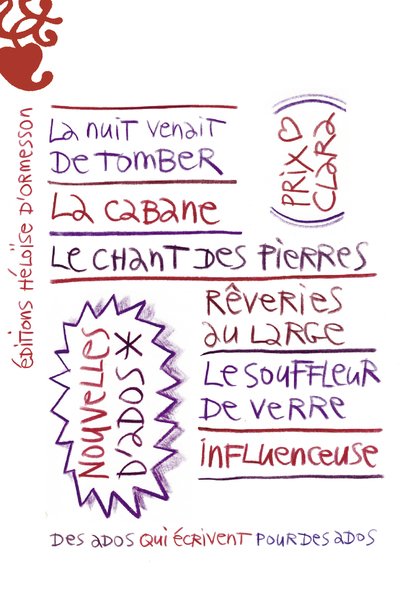 ÉDITIONS HÉLOÏSE D'ORMESSON
La nuit venait
de tomber
PRIX
CLARA
La cabane
Le chant des pierres
Rêveries
au large
Nouvelles
d'ados*
Le souffleur
de verre
Influenceuse
Des ados qui écrivent pour des ados